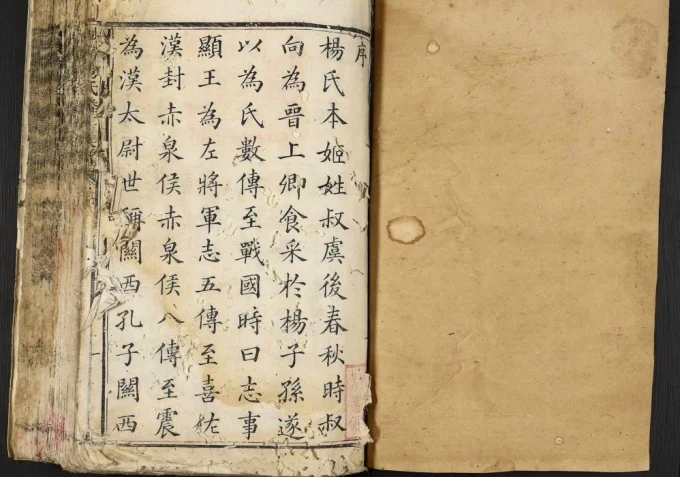 序
楊氏本姬姓叔虞後春秋時叔
向為晉上卿食采於楊子孫遂
以為氏數傳至戰國時曰志事
顯王為左將軍志五傳至喜佐
漢封赤泉侯赤泉侯八傳至震
為漢太尉世稱關西孔子關西